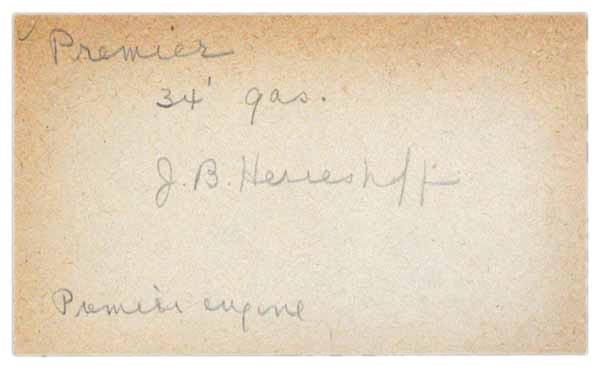 Premier
34' gas.
J. B. Herreshoff
Premier engine